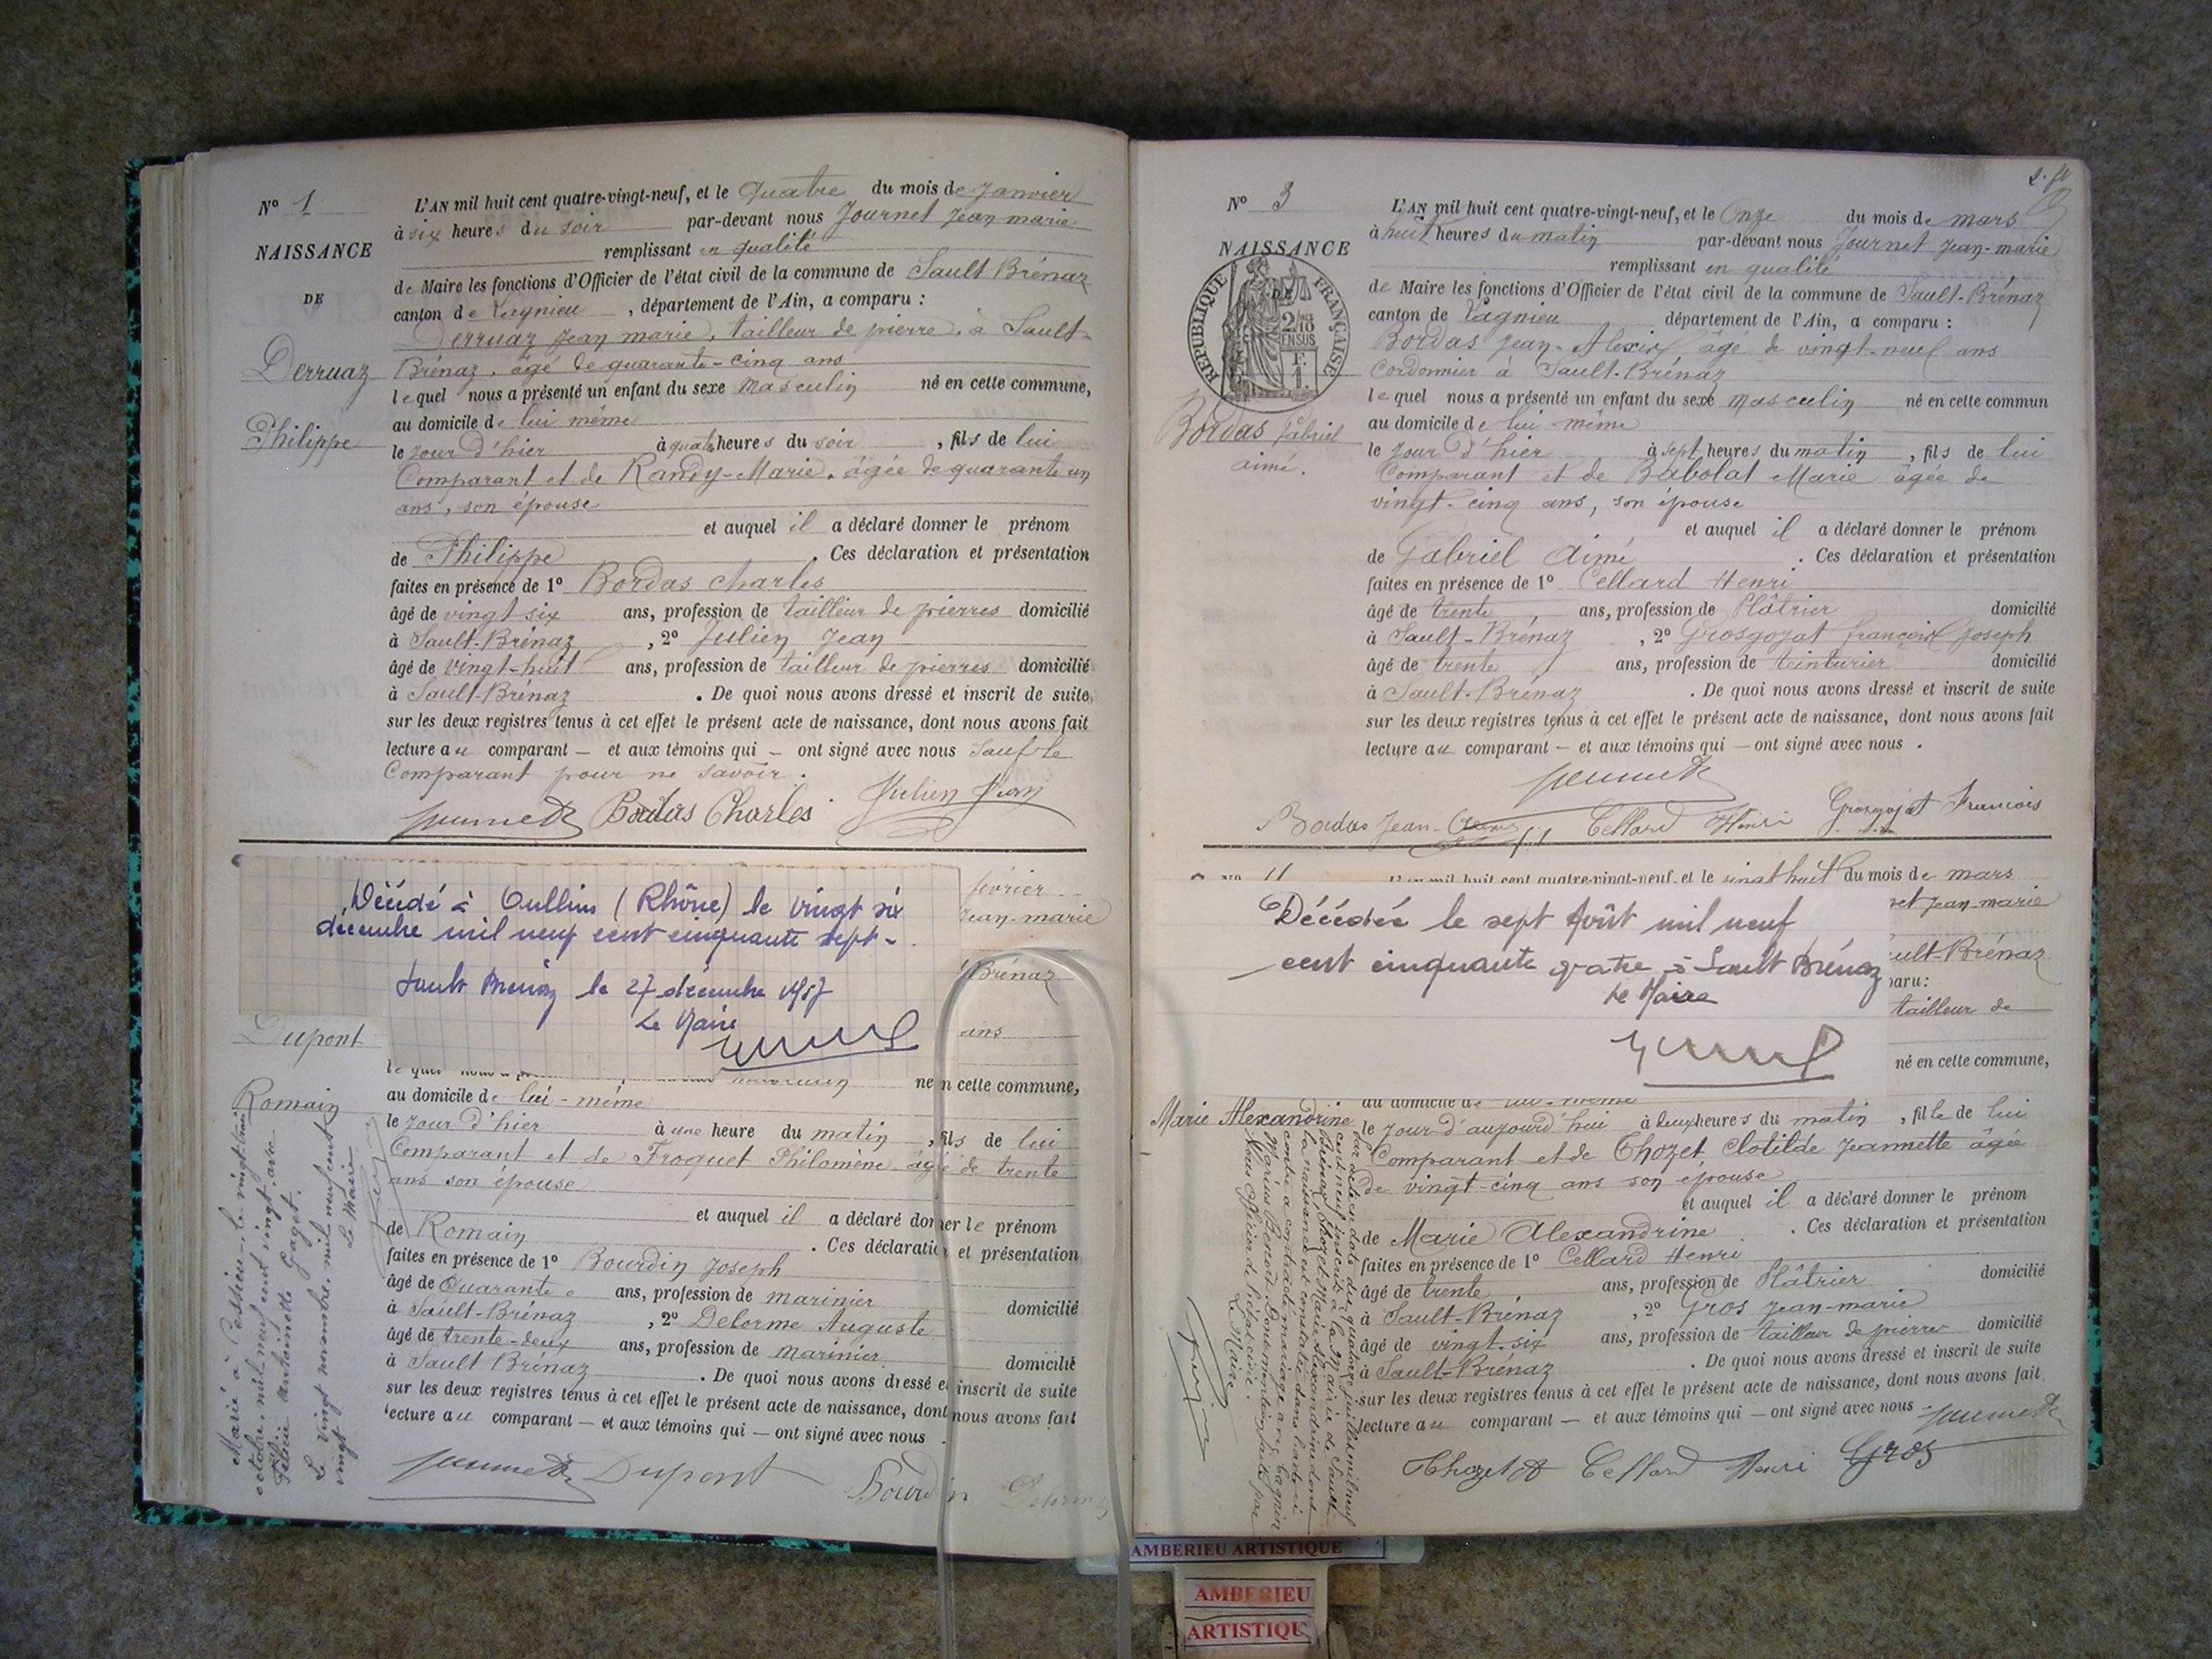 Nº 1
NAISSANCE
DE
Derruaz
Philippe
L'AN mil huit cent quatre-vingt-neuf, et le quatre du mois de janvier
à six heures du soir par-devant nous Journet Jean marie
remplissant en qualité
de Maire les fonctions d'Officier de l'état civil de la commune de Sault Brénaz
canton de Lagnieu , département de l'Ain, a comparu :
Derruaz Jean marie, tailleur de pierre, à Sault-
Brénaz, âgé de quarante-cinq ans
lequel nous a présenté un enfant du sexe masculin né en cette commune,
au domicile de lui même
le jour d'hier à quatre heures du soir , fils de lui
Comparant et de Randy Marie, âgée de quarante un
ans, son épouse
et auquel il a déclaré donner le prénom
de Philippe . Ces déclaration et présentation
faites en présence de 1º Bordas Charles
âgé de vingt six ans, profession de tailleur de pierres domicilié
à Sault-Brénaz , 2º Julien Jean
âgé de vingt-huit ans, profession de tailleur de pierres domicilié
à Sault-Brénaz . De quoi nous avons dressé et inscrit de suite
sur les deux registres tenus à cet effet le présent acte de naissance, dont nous avons fait
lecture au comparant — et aux témoins qui — ont signé avec nous sauf le
Comparant pour ne savoir.
Bordas Charles Julien Jean
février
Jean-marie
Brénaz
ans
Décédé à Oullins (Rhône) le vingt six
décembre mil neuf cent cinquante sept.
Sault Brénaz le 27 décembre 1957
Le Maire
Dupont
Romain
né en cette commune,
au domicile de lui-même
le jour d'hier à une heure du matin , fils de lui
Comparant et de Froquet Philomène âgée de trente
ans son épouse
et auquel il a déclaré donner le prénom
de Romain . Ces déclaration et présentation
faites en présence de 1º Bourdin Joseph
âgé de Quarante ans, profession de marinier domicilié
à Sault-Brénaz , 2º Delorme Auguste
âgé de trente-deux ans, profession de marinier domicilié
à Sault Brénaz . De quoi nous avons dressé et inscrit de suite
sur les deux registres tenus à cet effet le présent acte de naissance, dont nous avons fait
lecture au comparant — et aux témoins qui — ont signé avec nous .
Dupont Bourdin Delorme
Marié à le vingt-trois
octobre mil neuf cent vingt avec
Félicie Antoinette Gaget.
Le vingt novembre mil neuf cent
vingt Le Maire
Nº 3
NAISSANCE
DE
RÉPUBLIQUE FRANÇAISE
2/10
EN SUS
F.
1.
Bordas Gabriel
aimé.
L'AN mil huit cent quatre-vingt-neuf, et le Onze du mois de mars
à huit heures du matin par-devant nous Journet Jean-marie
remplissant en qualité
de Maire les fonctions d'Officier de l'état civil de la commune de Sault-Brénaz
canton de Lagnieu département de l'Ain, a comparu :
Bordas Jean-Alexis âgé de vingt-neuf ans
Cordonnier à Sault-Brénaz
lequel nous a présenté un enfant du sexe masculin né en cette commun
au domicile de lui-même
le jour d'hier à sept heures du matin , fils de lui
Comparant et de Babolat Marie âgée de
vingt-cinq ans, son épouse
et auquel il a déclaré donner le prénom
de Gabriel Aimé . Ces déclaration et présentation
faites en présence de 1º Cellard Henri
âgé de trente ans, profession de Plâtrier domicilié
à Sault-Brénaz , 2º Grosgojat françois Joseph
âgé de trente ans, profession de teinturier domicilié
à Sault-Brénaz . De quoi nous avons dressé et inscrit de suite
sur les deux registres tenus à cet effet le présent acte de naissance, dont nous avons fait
lecture au comparant — et aux témoins qui — ont signé avec nous .
Bordas Jean Cellard Henri Grosgojat Francois
L'AN mil huit cent quatre-vingt-neuf, et le vingt huit du mois de mars
net Jean-marie
ault-Brénaz
paru:
tailleur de
né en cette commune,
Décédée le sept Août mil neuf
cent cinquante quatre à Sault Brénaz
Le Maire
Marie Alexandrine
au domicile de lui-même
le jour d'aujourd'hui à deux heures du matin , fille de lui
Comparant et de Chozet Clotilde Jeannette âgée
de vingt-cinq ans son épouse
et auquel il a déclaré donner le prénom
de Marie Alexandrine . Ces déclaration et présentation
faites en présence de 1º Cellard Henri
âgé de trente ans, profession de Plâtrier domicilié
à Sault-Brénaz , 2º Gros Jean-marie
âgé de vingt-six ans, profession de tailleur de pierre domicilié
à Sault-Brénaz . De quoi nous avons dressé et inscrit de suite
sur les deux registres tenus à cet effet le présent acte de naissance, dont nous avons fait
lecture au comparant — et aux témoins qui — ont signé avec nous
Cellard Henri Gros
Par acte en date du quatorze juillet mil neuf
cent neuf inscrit à la Mairie de Sault
Brénaz, Chozet Marie Alexandrine dont
la naissance est constatée dans l'acte ci
contre a contracté mariage avec
Marius Mention faite par
Nous Officier de l'état civil.
Le Maire
AMBERIEU ARTISTIQUE
AMBERIEU
ARTISTIQUE